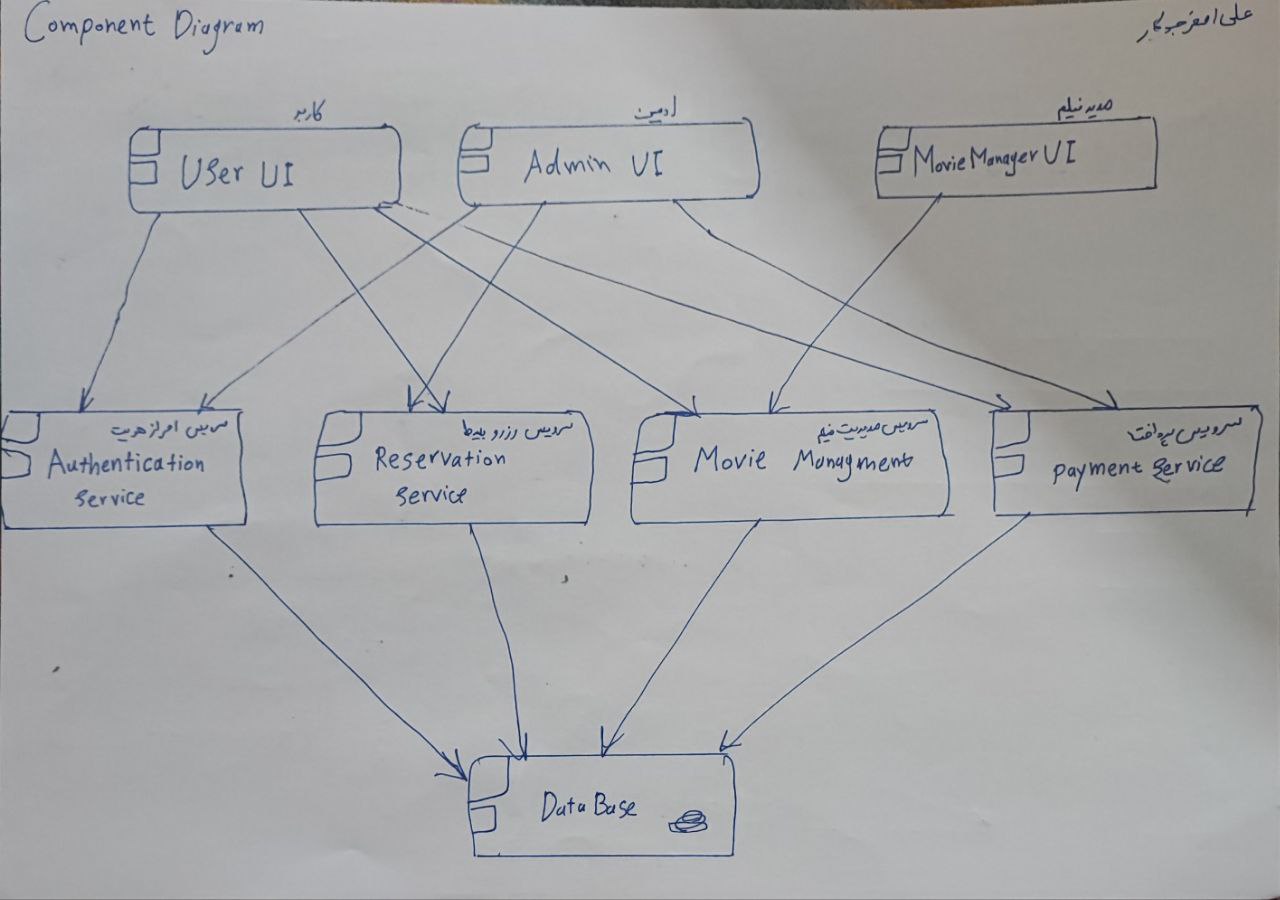 Component Diagram
علی اصغر جولکار
کاربر
ادمین
مدیر فیلم
User UI
Admin UI
MovieManager UI
سرویس احراز هویت
Authentication
Service
سرویس رزرو بلیط
Reservation
Service
سرویس مدیریت فیلم
Movie Managment
سرویس پرداخت
payment Service
DataBase